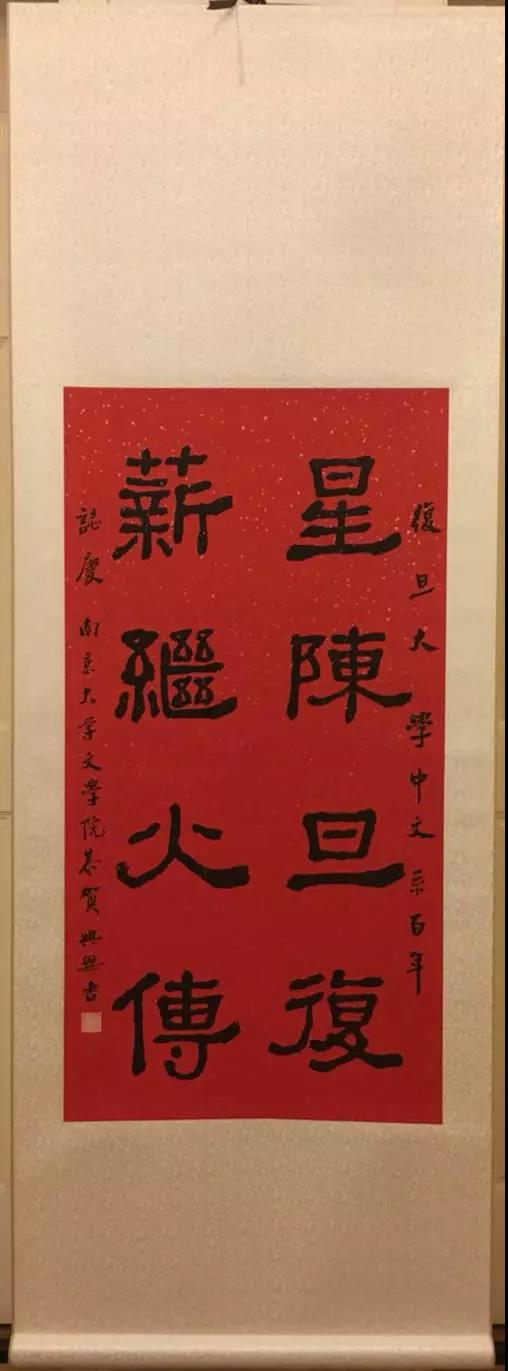 復旦大學中文系百年
星陳旦復
薪繼火傳
誌慶 南京大学文學院恭賀 興無书